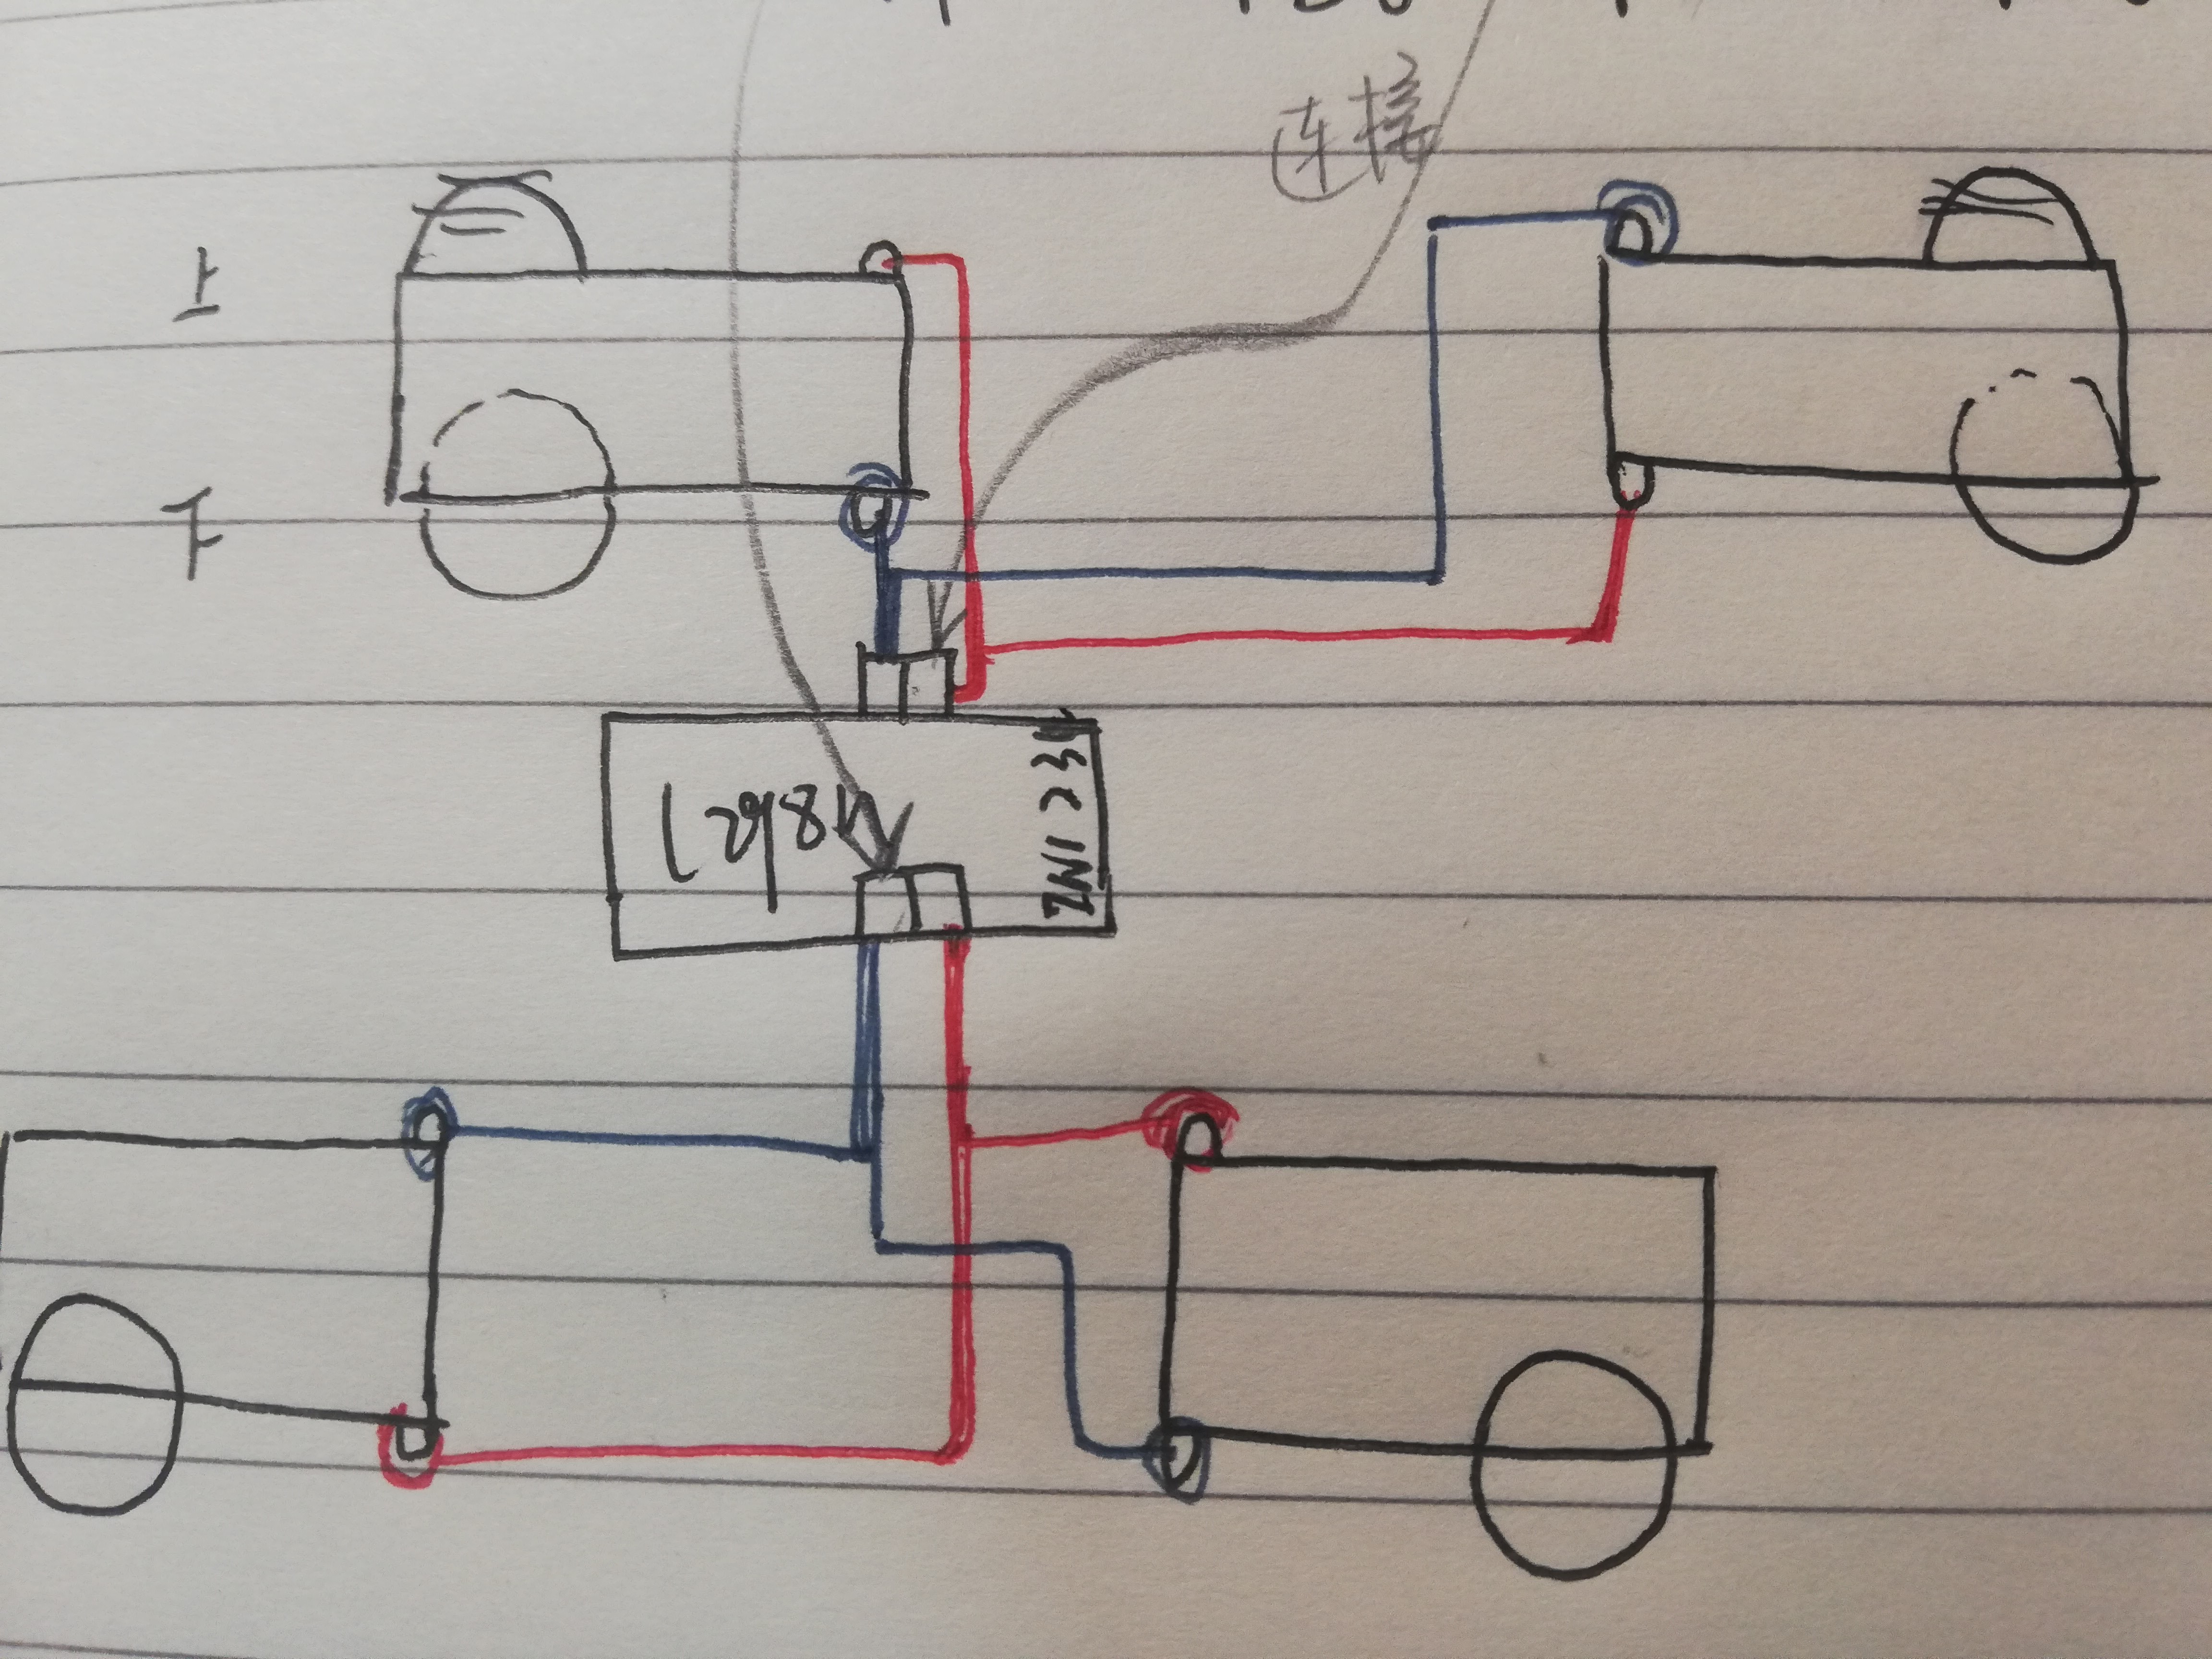 连接
上
下
L298N
IN1 2 3 4